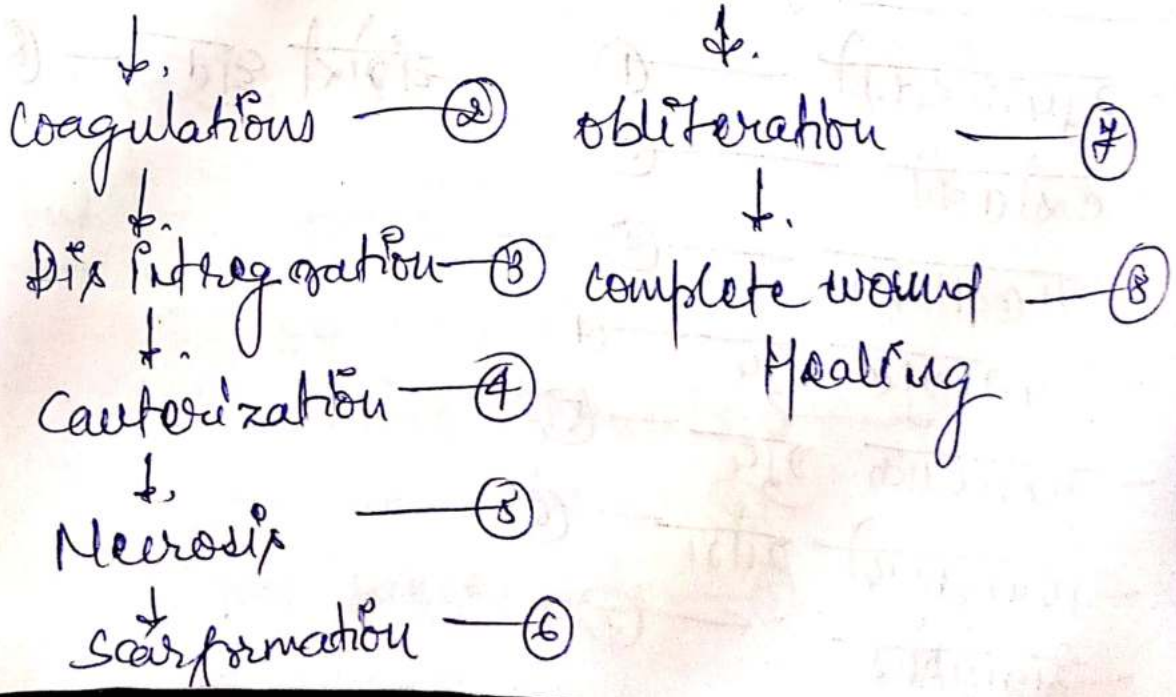 coagulations — ②
Dis intregration — ③
Cauterization — ④
Necrosis — ⑤
scar formation — ⑥
obliteration — ⑦
complete wound — ⑧
Healing